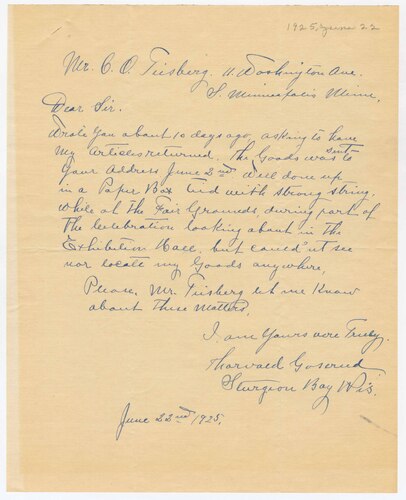 1925, June 22
Mr. C. O. Tiisberg, 11 Washington Ave.
S. Minneapolis Minn.
Dear Sir.
Wrote You about 10 days ago, asking to have
my articles returned. The Goods was sent to
Your Address June 2nd Well done up
in a Paper Box tied with strong string,
while at the Fair Grounds, during part of
the Celebration looking about in the
Exhibition Hall, but could'nt see
nor locate my Goods anywhere,
Please, Mr. Tiisberg let me Know
about these Matters,
I am Yours vere Truly.
Thorvald Goserud
Sturgeon Bay Wis.
June 22nd 1925.